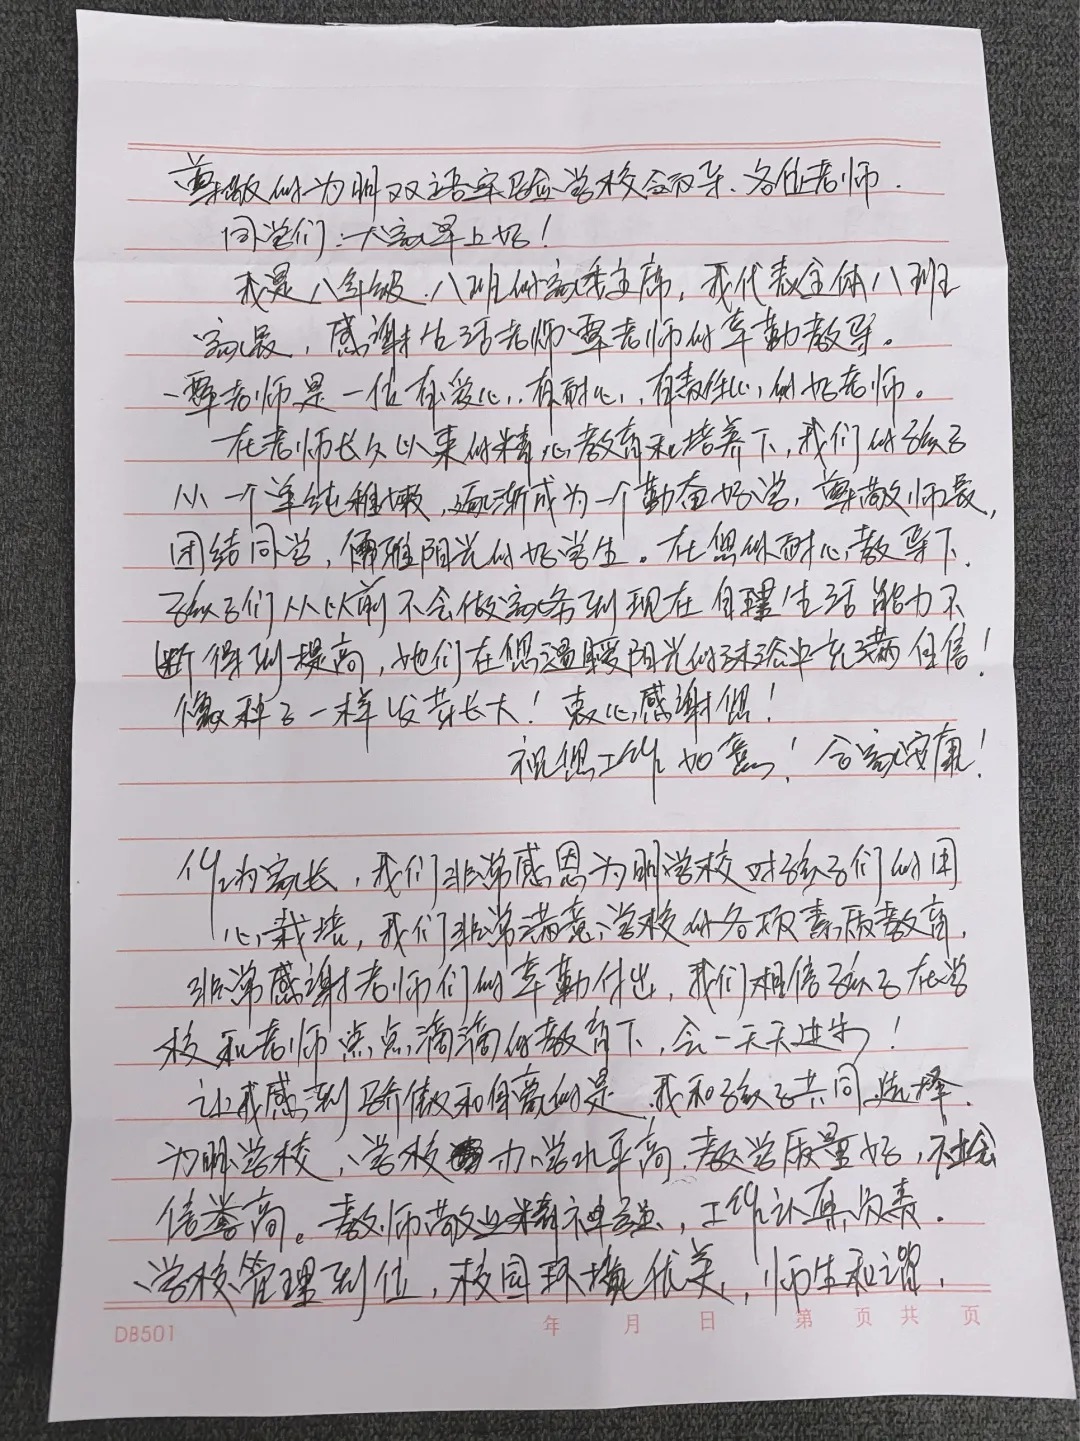 尊敬的为明双语实验学校领导、各位老师、
同学们：大家早上好！
我是八年级、八班的家委主席，我代表全体八班
家长，感谢生活老师覃老师的辛勤教导。
覃老师是一位有爱心，有耐心，有责任心的好老师。
在老师长久以来的精心教育和培养下，我们的孩子
从一个单纯稚嫩，逐渐成为一个勤奋好学，尊敬师长，
团结同学，儒雅阳光的好学生。在您的耐心教导下，
孩子们从以前不会做家务到现在自理生活能力不
断得到提高，她们在您温暖阳光的沐浴中充满自信！
像种子一样发芽长大！衷心感谢您！
祝您工作如意！合家安康！
作为家长，我们非常感恩为明学校对孩子们的用
心栽培，我们非常满意学校的各项素质教育，
非常感谢老师们的辛勤付出，我们相信孩子在学
校和老师点点滴滴的教育下，会一天天进步！
让我感到骄傲和自豪的是，我和孩子共同选择
为明学校，学校办学水平高，教学质量好，社会
信誉高。教师敬业精神强，工作认真负责。
学校管理到位，校园环境优美，师生和谐，
DB501 年 月 日 第 页 共 页